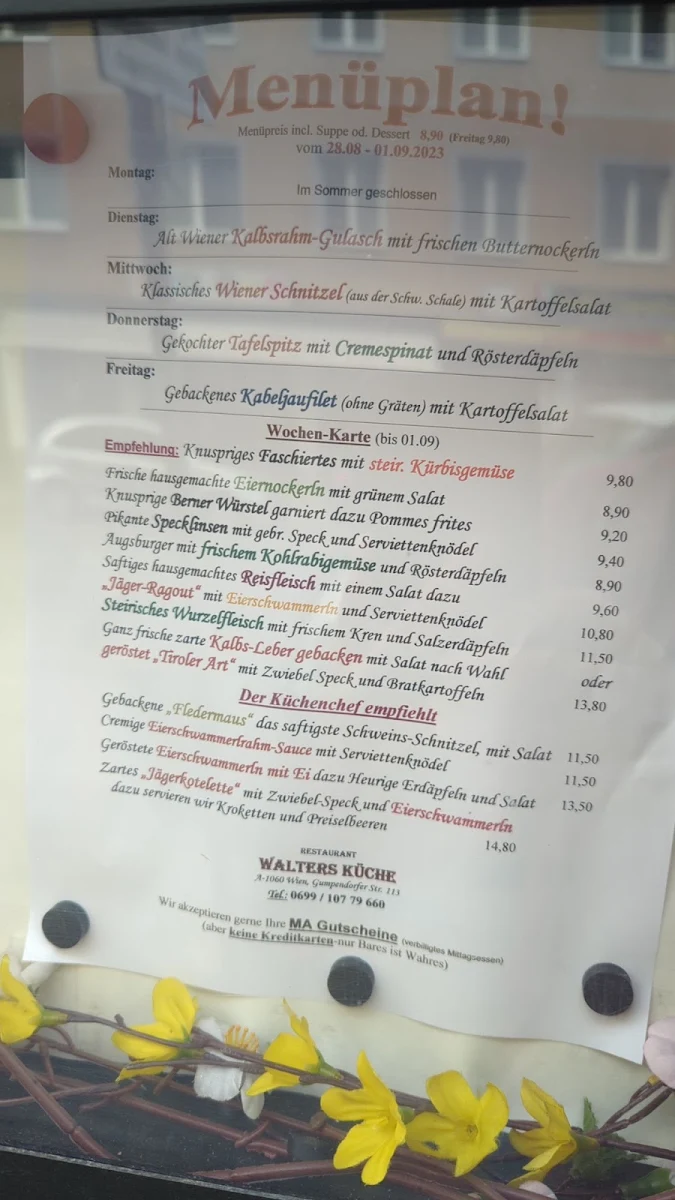 Menüplan!
Menüpreis incl. Suppe od. Dessert 8,90 (Freitag 9,80)
vom 28.08 - 01.09.2023
Montag:
Im Sommer geschlossen
Dienstag:
Alt Wiener Kalbsrahm-Gulasch mit frischen Butternockerln
Mittwoch:
Klassisches Wiener Schnitzel (aus der Schw. Schale) mit Kartoffelsalat
Donnerstag:
Gekochter Tafelspitz mit Cremespinat und Rösterdäpfeln
Freitag:
Gebackenes Kabeljaufilet (ohne Gräten) mit Kartoffelsalat
Wochen-Karte (bis 01.09)
Empfehlung: Knuspriges Faschiertes mit steir. Kürbisgemüse 9,80
Frische hausgemachte Eiernockerln mit grünem Salat 8,90
Knusprige Berner Würstel garniert dazu Pommes frites 9,20
Pikante Specklinsen mit gebr. Speck und Serviettenknödel 9,40
Augsburger mit frischem Kohlrabigemüse und Rösterdäpfeln 8,90
Saftiges hausgemachtes Reisfleisch mit einem Salat dazu 9,60
„Jäger-Ragout“ mit Eierschwammerln und Serviettenknödel 10,80
Steirisches Wurzelfleisch mit frischem Kren und Salzerdäpfeln 11,50
Ganz frische zarte Kalbs-Leber gebacken mit Salat nach Wahl oder
geröstet „Tiroler Art“ mit Zwiebel Speck und Bratkartoffeln 13,80
Der Küchenchef empfiehlt
Gebackene „Fledermaus“ das saftigste Schweins-Schnitzel, mit Salat 11,50
Cremige Eierschwammerlrahm-Sauce mit Serviettenknödel 11,50
Geröstete Eierschwammerln mit Ei dazu Heurige Erdäpfeln und Salat 13,50
Zartes „Jägerkotelette“ mit Zwiebel-Speck und Eierschwammerln
dazu servieren wir Kroketten und Preiselbeeren 14,80
RESTAURANT
WALTERS KÜCHE
A-1060 Wien, Gumpendorfer Str. 113
Tel.: 0699 / 107 79 660
Wir akzeptieren gerne Ihre MA Gutscheine (verbilligtes Mittagsessen)
(aber keine Kreditkarten-nur Bares ist Wahres)